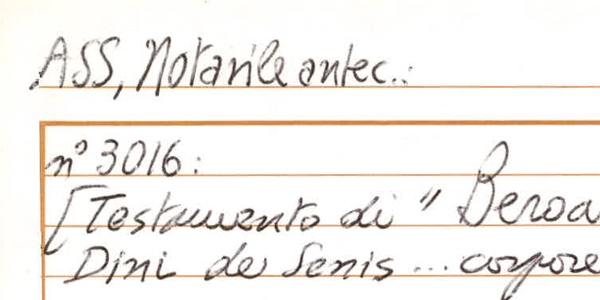 ASS, Notarile antec.:
n° 3016:
[Testamento di " Beroa
Dini de Senis ... corpore